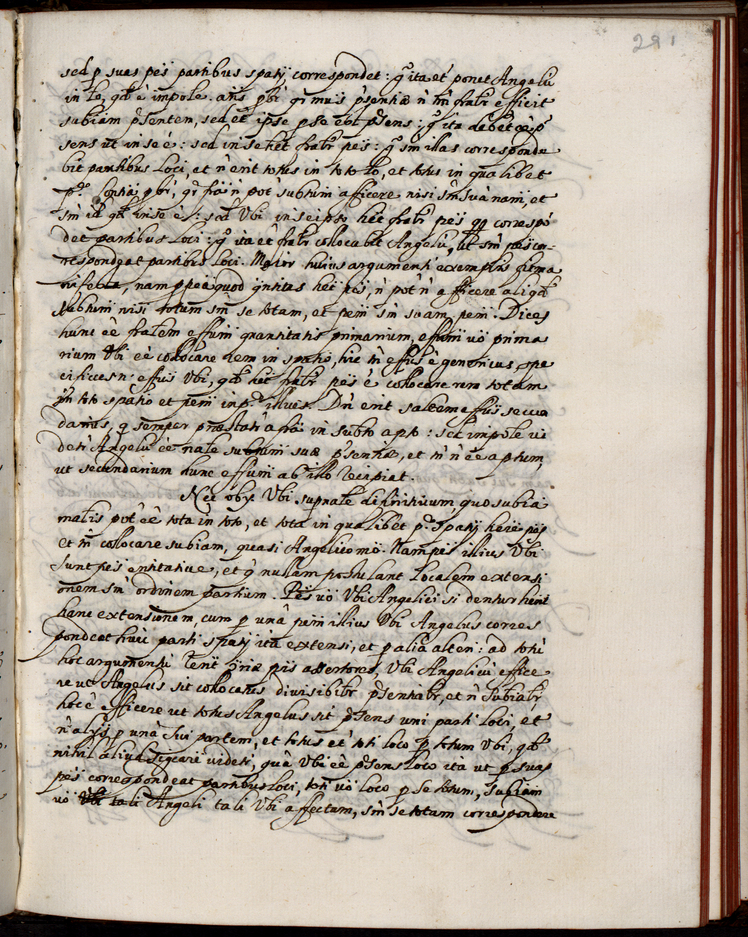 291
sed p suas pẽs partibus spatij correspondet: g° ita et ponet Angelũ
in lo, qd ẽ impole. ans pbr qr munus pñtiæ ñ tm fratr efficit
subiam pñtentem, sed et ipse p se ẽ pñsens: g° ita debet ẽẽ
sens ut in se ẽ: sed in se het pẽs: g° sm illas corresponde
bit partibus loci, et ñ erit totus in toto lo, et totus in qualibet
pte. pbr, qr frã ñ pot subtum afficere nisi sm suã nam, et
sm id qd in se ẽ: sed Ubi in se ipso het pẽs qq correspõ
det partibus loci: g° ita et collocabit Angelũ, ut sm pẽs cor-
respondeat partibus loci. Maior huius argumenti exemplis firma
nam pp ea quod qntitas het pẽs, ñ pot ñ afficere aliqd
subtum nisi totum sm se totam, et pẽm sm suam pẽm. Dices
hunc ẽẽ effum quantitatis primarium, effum uõ prima
rium Ubi ẽẽ collocare rem in spatio, hic tñ effus ẽ genericus, spe
cificus ñ effus Ubi, qd het pẽs ẽ collocare rem totam
in toto spatio et pẽm in pte illius. Dñ erit saltem effus secun
darius, q semper præstatur a frã in subto apto: sed impole ui
detur Angelũ ẽẽ nale subtum suæ pñtiæ, et tñ ñ ẽẽ aptum,
ut secundarium hunc effum ab illo recipiat.
Nec obst Ubi supnale definitiuum, quo subia
malis pot ẽẽ tota in toto, et tota in qualibet pte spatij here pẽs
et tñ collocare subiam, quasi Angelico mõ. Nam pẽs illius Ubi
sunt pẽs entitatiue, et q nullam postulant localem extensi
onem sm ordinem partium. Pẽs uõ Ubi Angelici si dentur hent
hanc extensionem, cum p unã pẽm illius Ubi Angelus corres
pondeat huic parti spatij ita extensi, et p aliã alteri: ad totũ
hoc argumentũ assertores, Ubi Angelicũ effice
re ut Angelus sit collocatus divisibilr pñtialr, et ñ subialr,
hoc ẽ efficere ut totus Angelus sit pñsens uni parti loci, et
ñ alij p unã sui partem, et totus et toti loco p totum Ubi, qd
nihil aliud uidetr, quã Ubi ẽẽ pñsens loco ita ut p suas
pẽs correspondeat partibus loci, toti uõ loco p se totum, subiam
uõ tali Angeli tali Ubi affectam, sm se totam correspondere